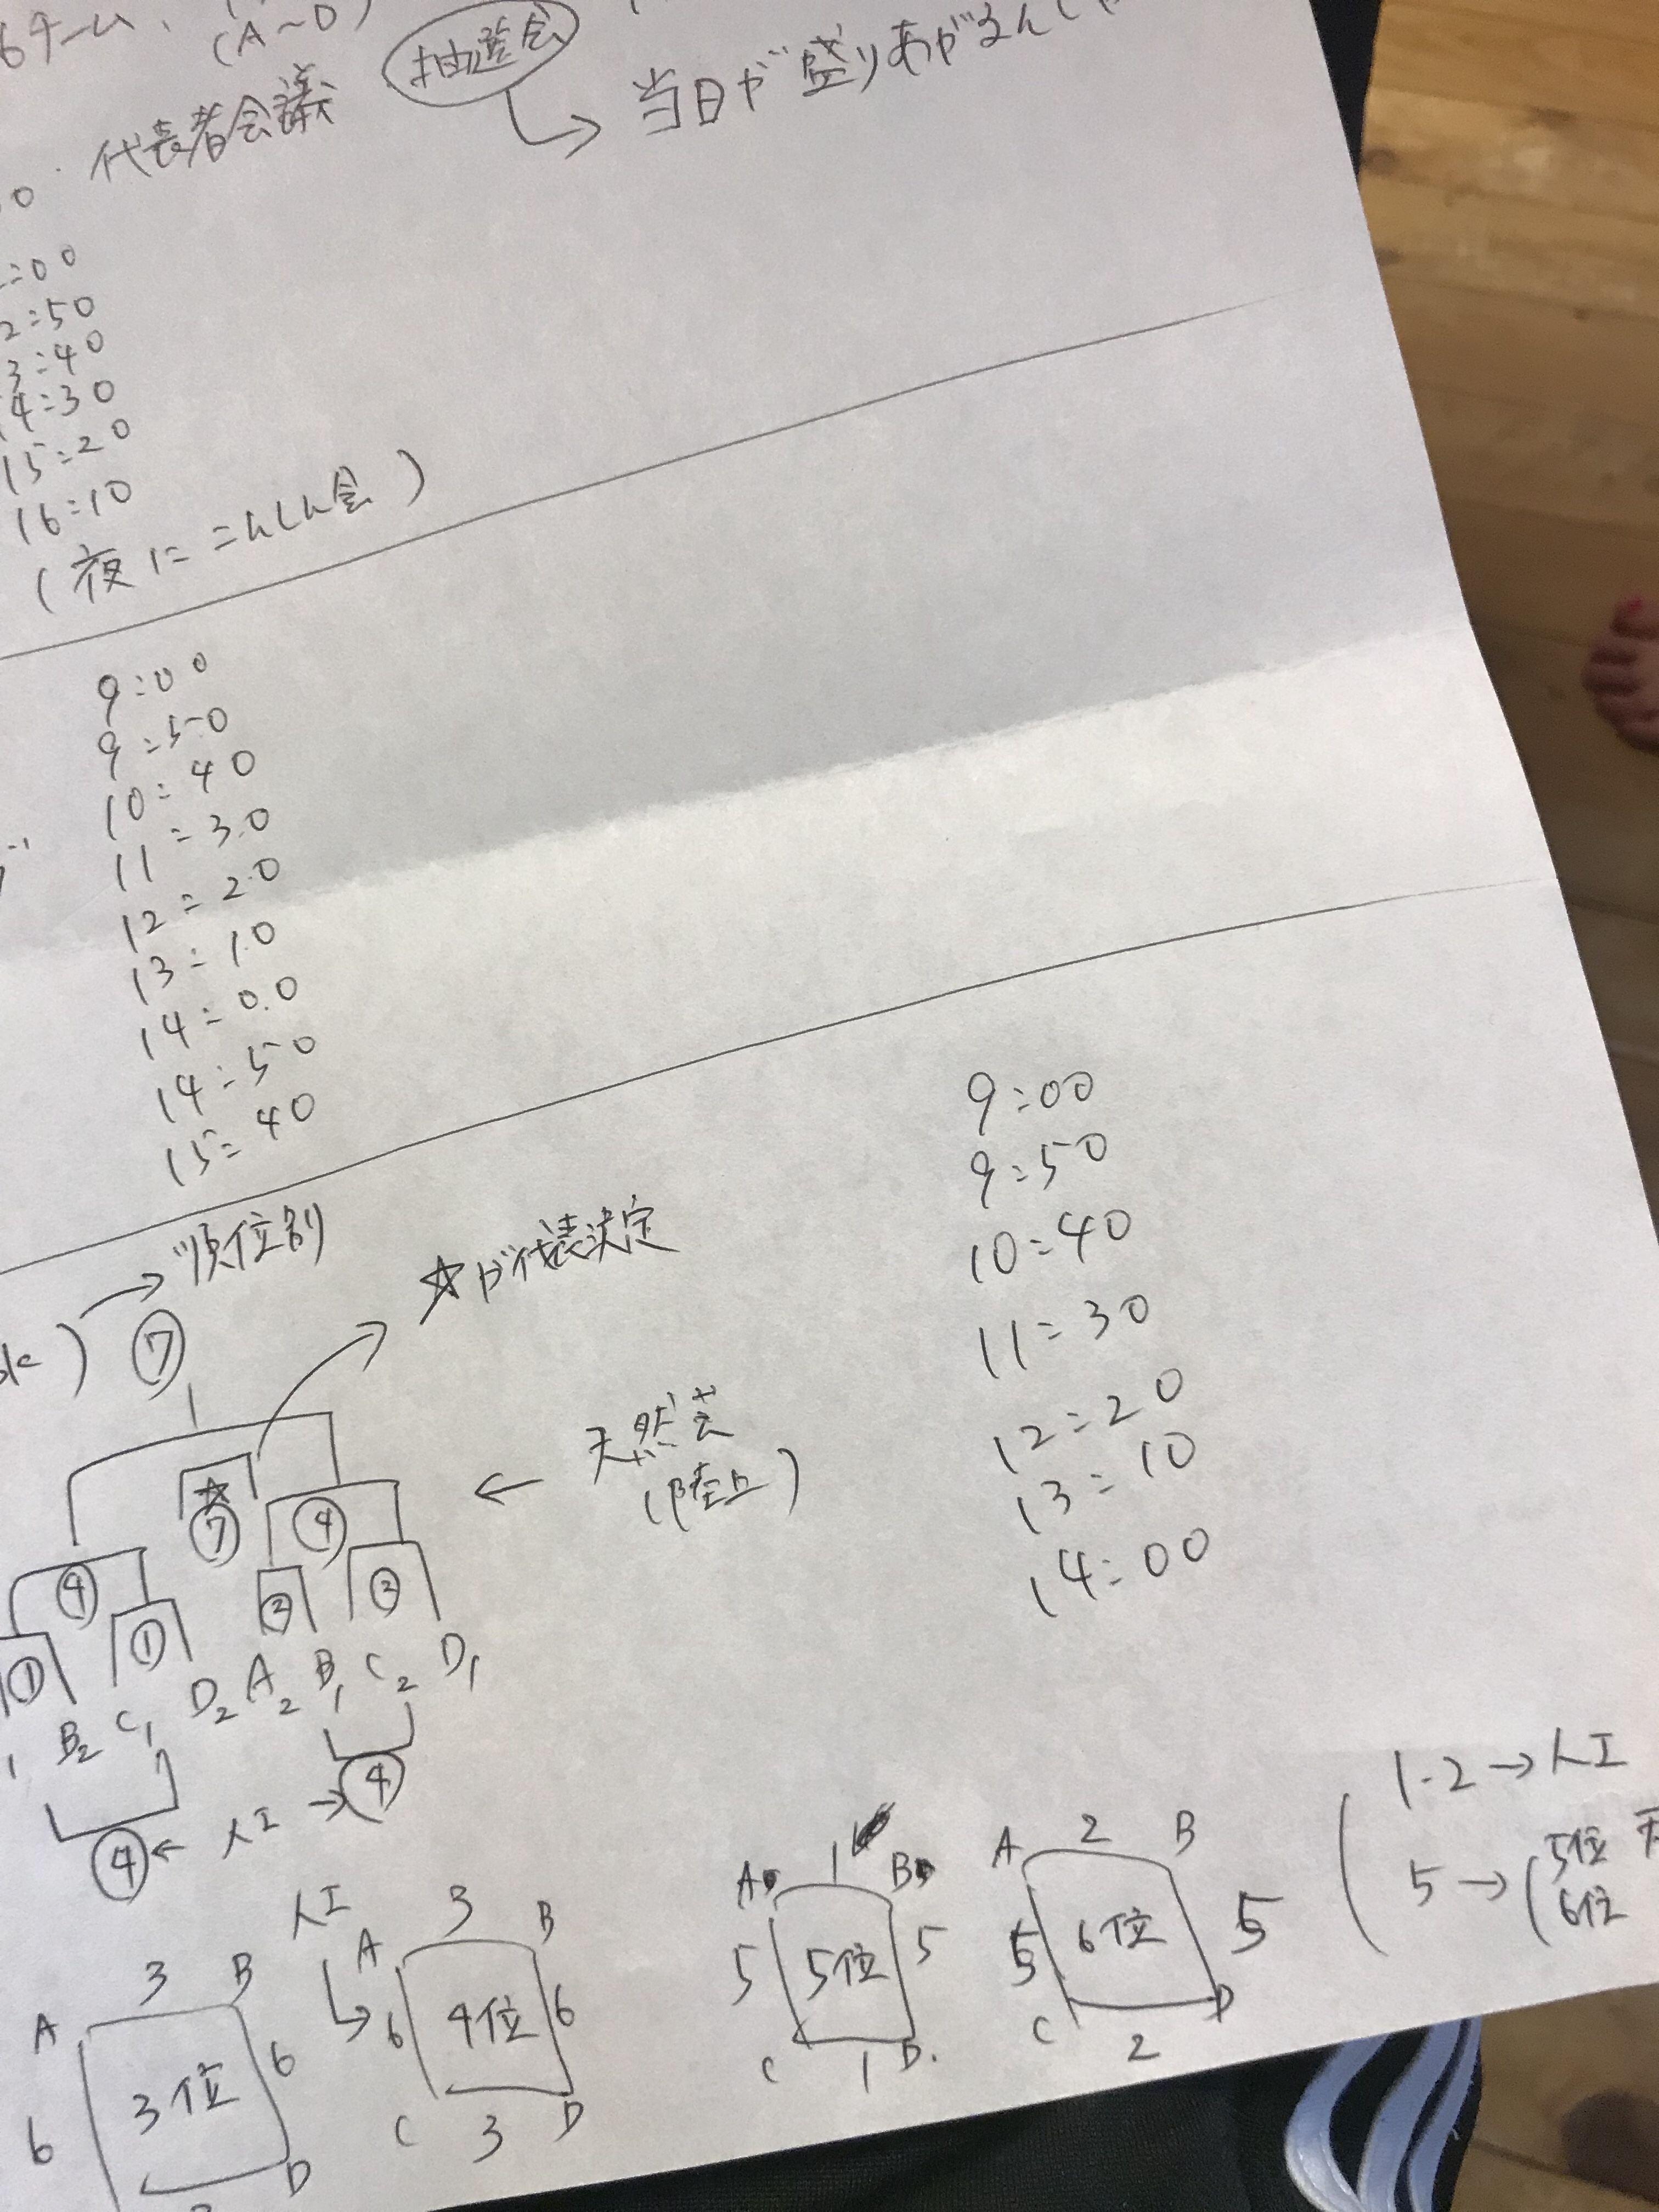 6チーム、(A~D)
代表者会議 抽選会
→ 当日が盛りあがる
:00
2:50
3:40
4:30
15:20
16:10
(夜に こんしん会)
9:00
9:50
10:40
11:30
12:20
13:10
14:00
14:50
15:40
→ 順位別
☆が代表決定
⑦
☆
⑦
④
④
①
①
②
②
← 天然芝
(陸上)
1 B2 C1 D2 A2 B1 C2 D1
④ ← 人工 → ④
9:00
9:50
10:40
11:30
12:20
13:10
14:00
A 3 B
6 3位 6
D
人工
A 3 B
6 4位 6
C 3 D
A 1 B
5 5位 5
C 1 D
A 2 B
5 6位 5
C 2 D
1.2 → 人工
5 → (5位
6位